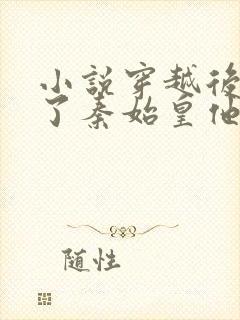 小說穿越後
了秦始皇他
随性